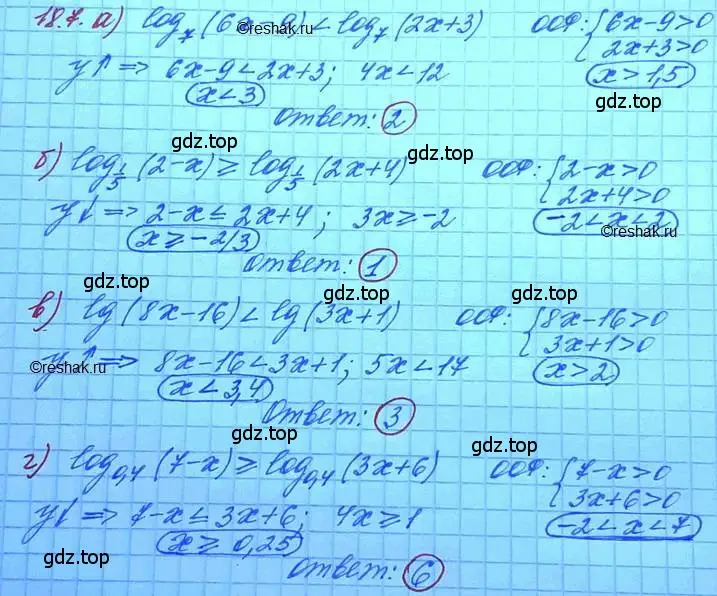 18.7. а) log₇(6x-9) < log₇(2x+3) ООФ: { 6x-9>0
2x+3>0
y↑ ⇒ 6x-9<2x+3; 4x<12 x>1,5
x<3
Ответ: 2
gdz.top gdz.top
б) log_{1/5}(2-x) ≥ log_{1/5}(2x+4) ООФ: { 2-x>0
2x+4>0
y↓ ⇒ 2-x≤2x+4; 3x≥-2 -2<x<2
x≥-2/3
Ответ: 1
gdz.top gdz.top gdz.top
в) lg(8x-16) < lg(3x+1) ООФ: { 8x-16>0
3x+1>0
y↑ ⇒ 8x-16<3x+1; 5x<17 x>2
x<3,4
Ответ: 3
gdz.top gdz.top
г) log_{0,4}(7-x) ≥ log_{0,4}(3x+6) ООФ: { 7-x>0
3x+6>0
y↓ ⇒ 7-x≤3x+6; 4x≥1 -2<x<7
x≥0,25
Ответ: 6
gdz.top gdz.top gdz.top
©reshak.ru
©reshak.ru
©reshak.ru